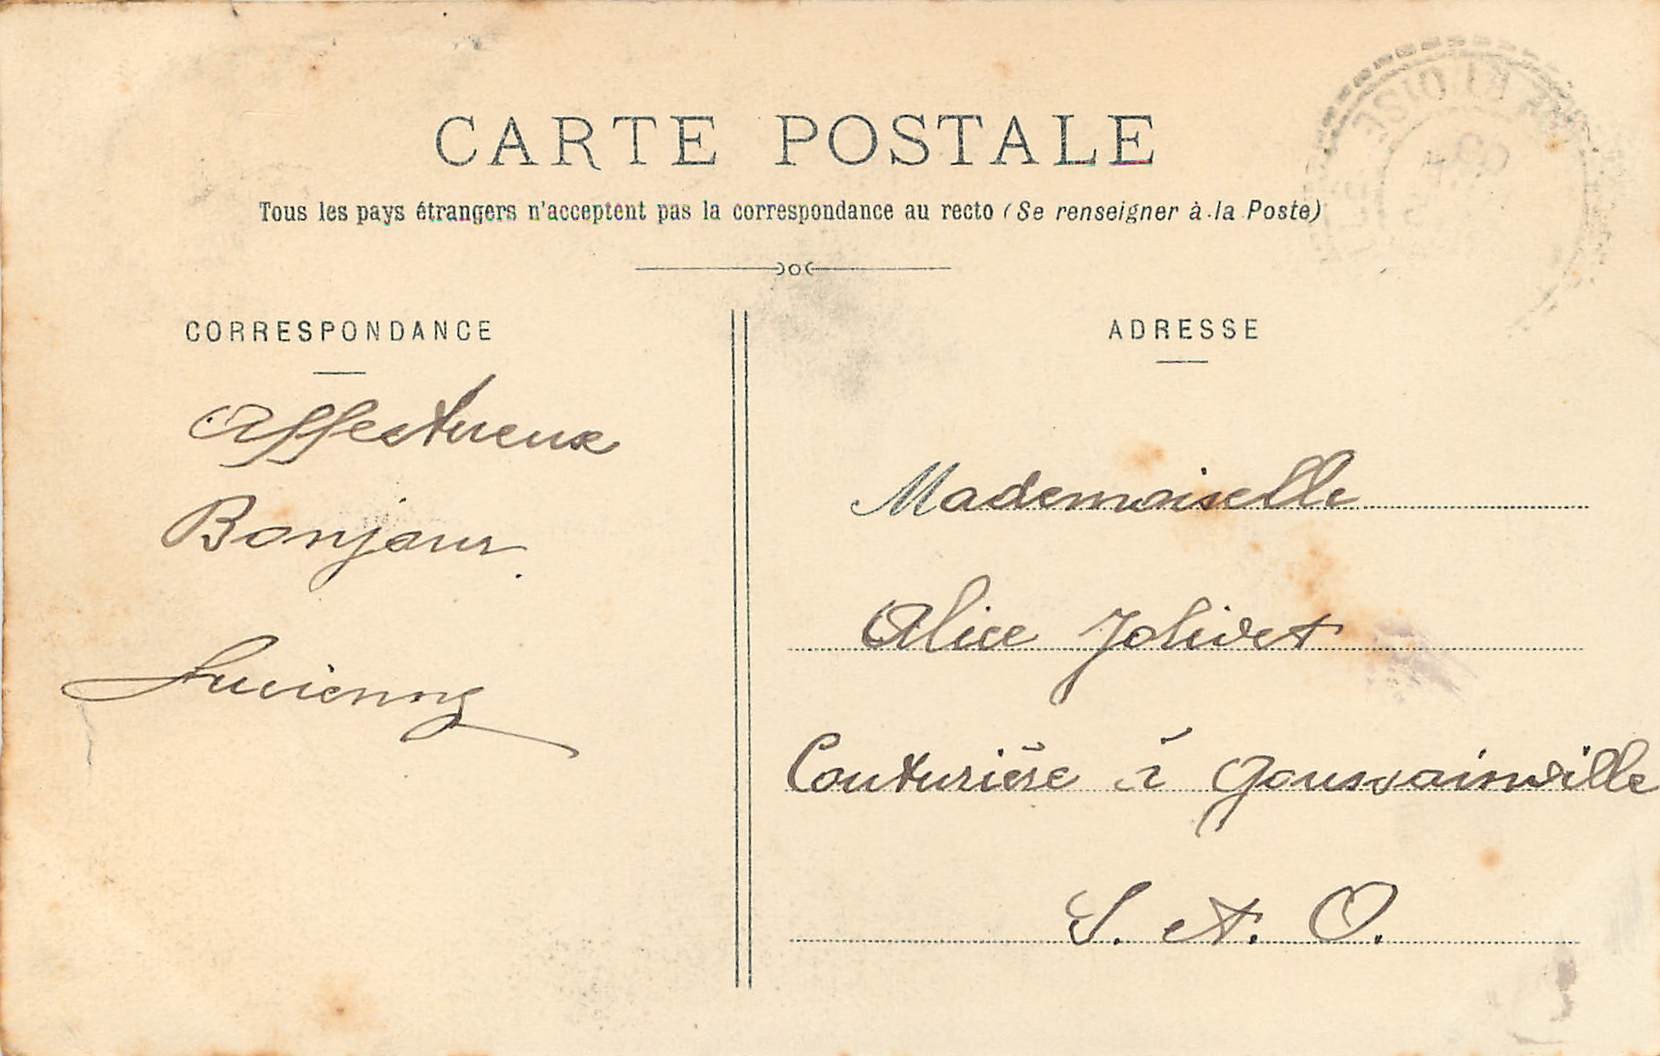 CARTE POSTALE
Tous les pays étrangers n'acceptent pas la correspondance au recto (Se renseigner à la Poste)
CORRESPONDANCE
Affectueux
Bonjour.
Lucienne
ADRESSE
Mademoiselle
Alice Jolivet
Couturière à Goussainville
S. et. O.
ET OISE